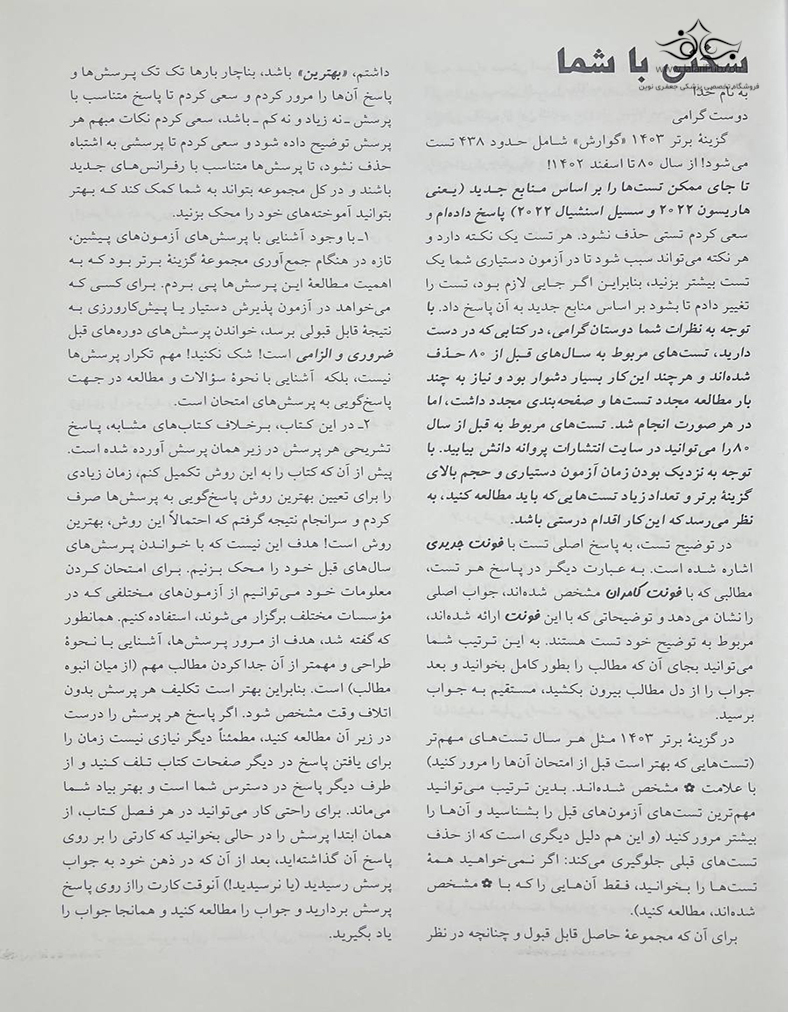 سخنی با شما
فروشگاه تخصصی پزشکی جعفری نوین
به نام خدا
دوست گرامی
گزینهٔ برتر ۱۴۰۳ «گوارش» شامل حدود ۴۳۸ تست
می‌شود! از سال ۸۰ تا اسفند ۱۴۰۲!
تا جای ممکن تست‌ها را بر اساس منابع جدید (یعنی
هاریسون ۲۰۲۲ و سسیل اسنشیال ۲۰۲۲) پاسخ داده‌ام و
سعی کردم تستی حذف نشود. هر تست یک نکته دارد و
هر نکته می‌تواند سبب شود تا در آزمون دستیاری شما یک
تست بیشتر بزنید، بنابراین اگر جایی لازم بود، تست را
تغییر دادم تا بشود بر اساس منابع جدید به آن پاسخ داد. با
توجه به نظرات شما دوستان گرامی، در کتابی که در دست
دارید، تست‌های مربوط به سال‌های قبل از ۸۰ حذف
شده‌اند و هرچند این کار بسیار دشوار بود و نیاز به چند
بار مطالعه مجدد تست‌ها و صفحه‌بندی مجدد داشت، اما
در هر صورت انجام شد. تست‌های مربوط به قبل از سال
۸۰ را می‌توانید در سایت انتشارات پروانه دانش بیابید. با
توجه به نزدیک بودن زمان آزمون دستیاری و حجم بالای
گزینهٔ برتر و تعداد زیاد تست‌هایی که باید مطالعه کنید، به
نظر می‌رسد که این کار اقدام درستی باشد.
در توضیح تست، به پاسخ اصلی تست با فونت جدیدی
اشاره شده است. به عبارت دیگر در پاسخ هر تست،
مطالبی که با فونت کامران مشخص شده‌اند، جواب اصلی
را نشان می‌دهد و توضیحاتی که با این فونت ارائه شده‌اند،
مربوط به توضیح خود تست هستند. به این ترتیب شما
می‌توانید بجای آن که مطالب را بطور کامل بخوانید و بعد
جواب را از دل مطالب بیرون بکشید، مستقیم به جواب
برسید.
در گزینهٔ برتر ۱۴۰۳ مثل هر سال تست‌های مهم‌تر
(تست‌هایی که بهتر است قبل از امتحان آن‌ها را مرور کنید)
با علامت ✿ مشخص شده‌اند. بدین ترتیب می‌توانید
مهم‌ترین تست‌های آزمون‌های قبل را بشناسید و آن‌ها را
بیشتر مرور کنید (و این هم دلیل دیگری است که از حذف
تست‌های قبلی جلوگیری می‌کند: اگر نمی‌خواهید همهٔ
تست‌ها را بخوانید، فقط آن‌هایی را که با ✿ مشخص
شده‌اند، مطالعه کنید).
برای آن که مجموعهٔ حاصل قابل قبول و چنانچه در نظر
داشتم، «بهترین» باشد، بناچار بارها تک تک پرسش‌ها و
پاسخ آن‌ها را مرور کردم و سعی کردم تا پاسخ متناسب با
پرسش ـ نه زیاد و نه کم ـ باشد، سعی کردم نکات مبهم هر
پرسش توضیح داده شود و سعی کردم تا پرسشی به اشتباه
حذف نشود، تا پرسش‌ها متناسب با رفرانس‌های جدید
باشند و در کل مجموعه بتواند به شما کمک کند که بهتر
بتوانید آموخته‌های خود را محک بزنید.
۱ـ با وجود آشنایی با پرسش‌های آزمون‌های پیشین،
تازه در هنگام جمع‌آوری مجموعهٔ گزینهٔ برتر بود که به
اهمیت مطالعهٔ این پرسش‌ها پی بردم. برای کسی که
می‌خواهد در آزمون پذیرش دستیار یا پیش‌کارورزی به
نتیجهٔ قابل قبولی برسد، خواندن پرسش‌های دوره‌های قبل
ضروری و الزامی است! شک نکنید! مهم تکرار پرسش‌ها
نیست، بلکه آشنایی با نحوهٔ سؤالات و مطالعه در جهت
پاسخ‌گویی به پرسش‌های امتحان است.
۲ـ در این کتاب، برخلاف کتاب‌های مشابه، پاسخ
تشریحی هر پرسش در زیر همان پرسش آورده شده است.
پیش از آن که کتاب را به این روش تکمیل کنم، زمان زیادی
را برای تعیین بهترین روش پاسخ‌گویی به پرسش‌ها صرف
کردم و سرانجام نتیجه گرفتم که احتمالاً این روش، بهترین
روش است! هدف این نیست که با خواندن پرسش‌های
سال‌های قبل خود را محک بزنیم. برای امتحان کردن
معلومات خود می‌توانیم از آزمون‌های مختلفی که در
مؤسسات مختلف برگزار می‌شوند، استفاده کنیم. همانطور
که گفته شد، هدف از مرور پرسش‌ها، آشنایی با نحوهٔ
طراحی و مهمتر از آن جدا کردن مطالب مهم (از میان انبوه
مطالب) است. بنابراین بهتر است تکلیف هر پرسش بدون
اتلاف وقت مشخص شود. اگر پاسخ هر پرسش را درست
در زیر آن مطالعه کنید، مطمئناً دیگر نیازی نیست زمان را
برای یافتن پاسخ در دیگر صفحات کتاب تلف کنید و از
طرف دیگر پاسخ در دسترس شما است و بهتر بیاد شما
می‌ماند. برای راحتی کار می‌توانید در هر فصل کتاب، از
همان ابتدا پرسش را در حالی بخوانید که کارتی را بر روی
پاسخ آن گذاشته‌اید، بعد از آن که در ذهن خود به جواب
پرسش رسیدید (یا نرسیدید!) آنوقت کارت را از روی پاسخ
پرسش بردارید و جواب را مطالعه کنید و همانجا جواب را
یاد بگیرید.